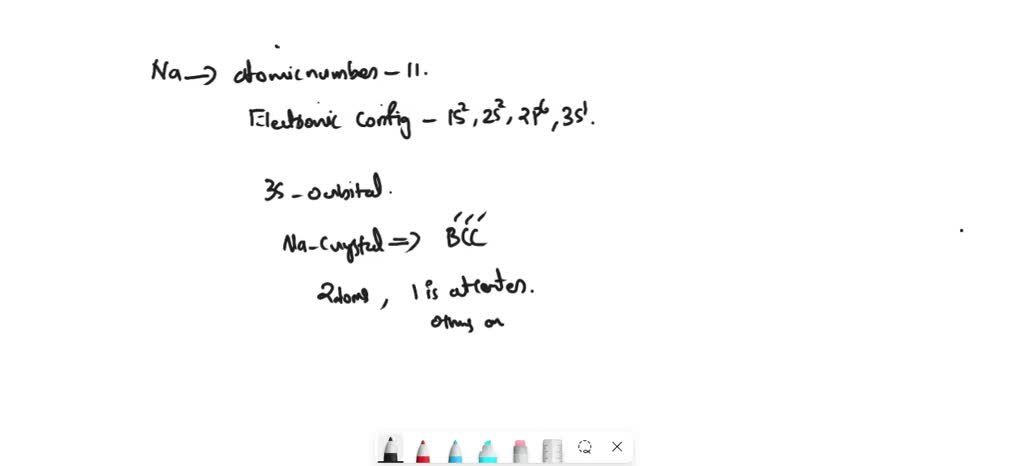 Na → atomic number - 11.
Electronic config - 1s², 2s², 2p⁶, 3s¹.
3s - orbital.
Na - Crystal ⇒ BCC
2 atoms, 1 is at center.
others on